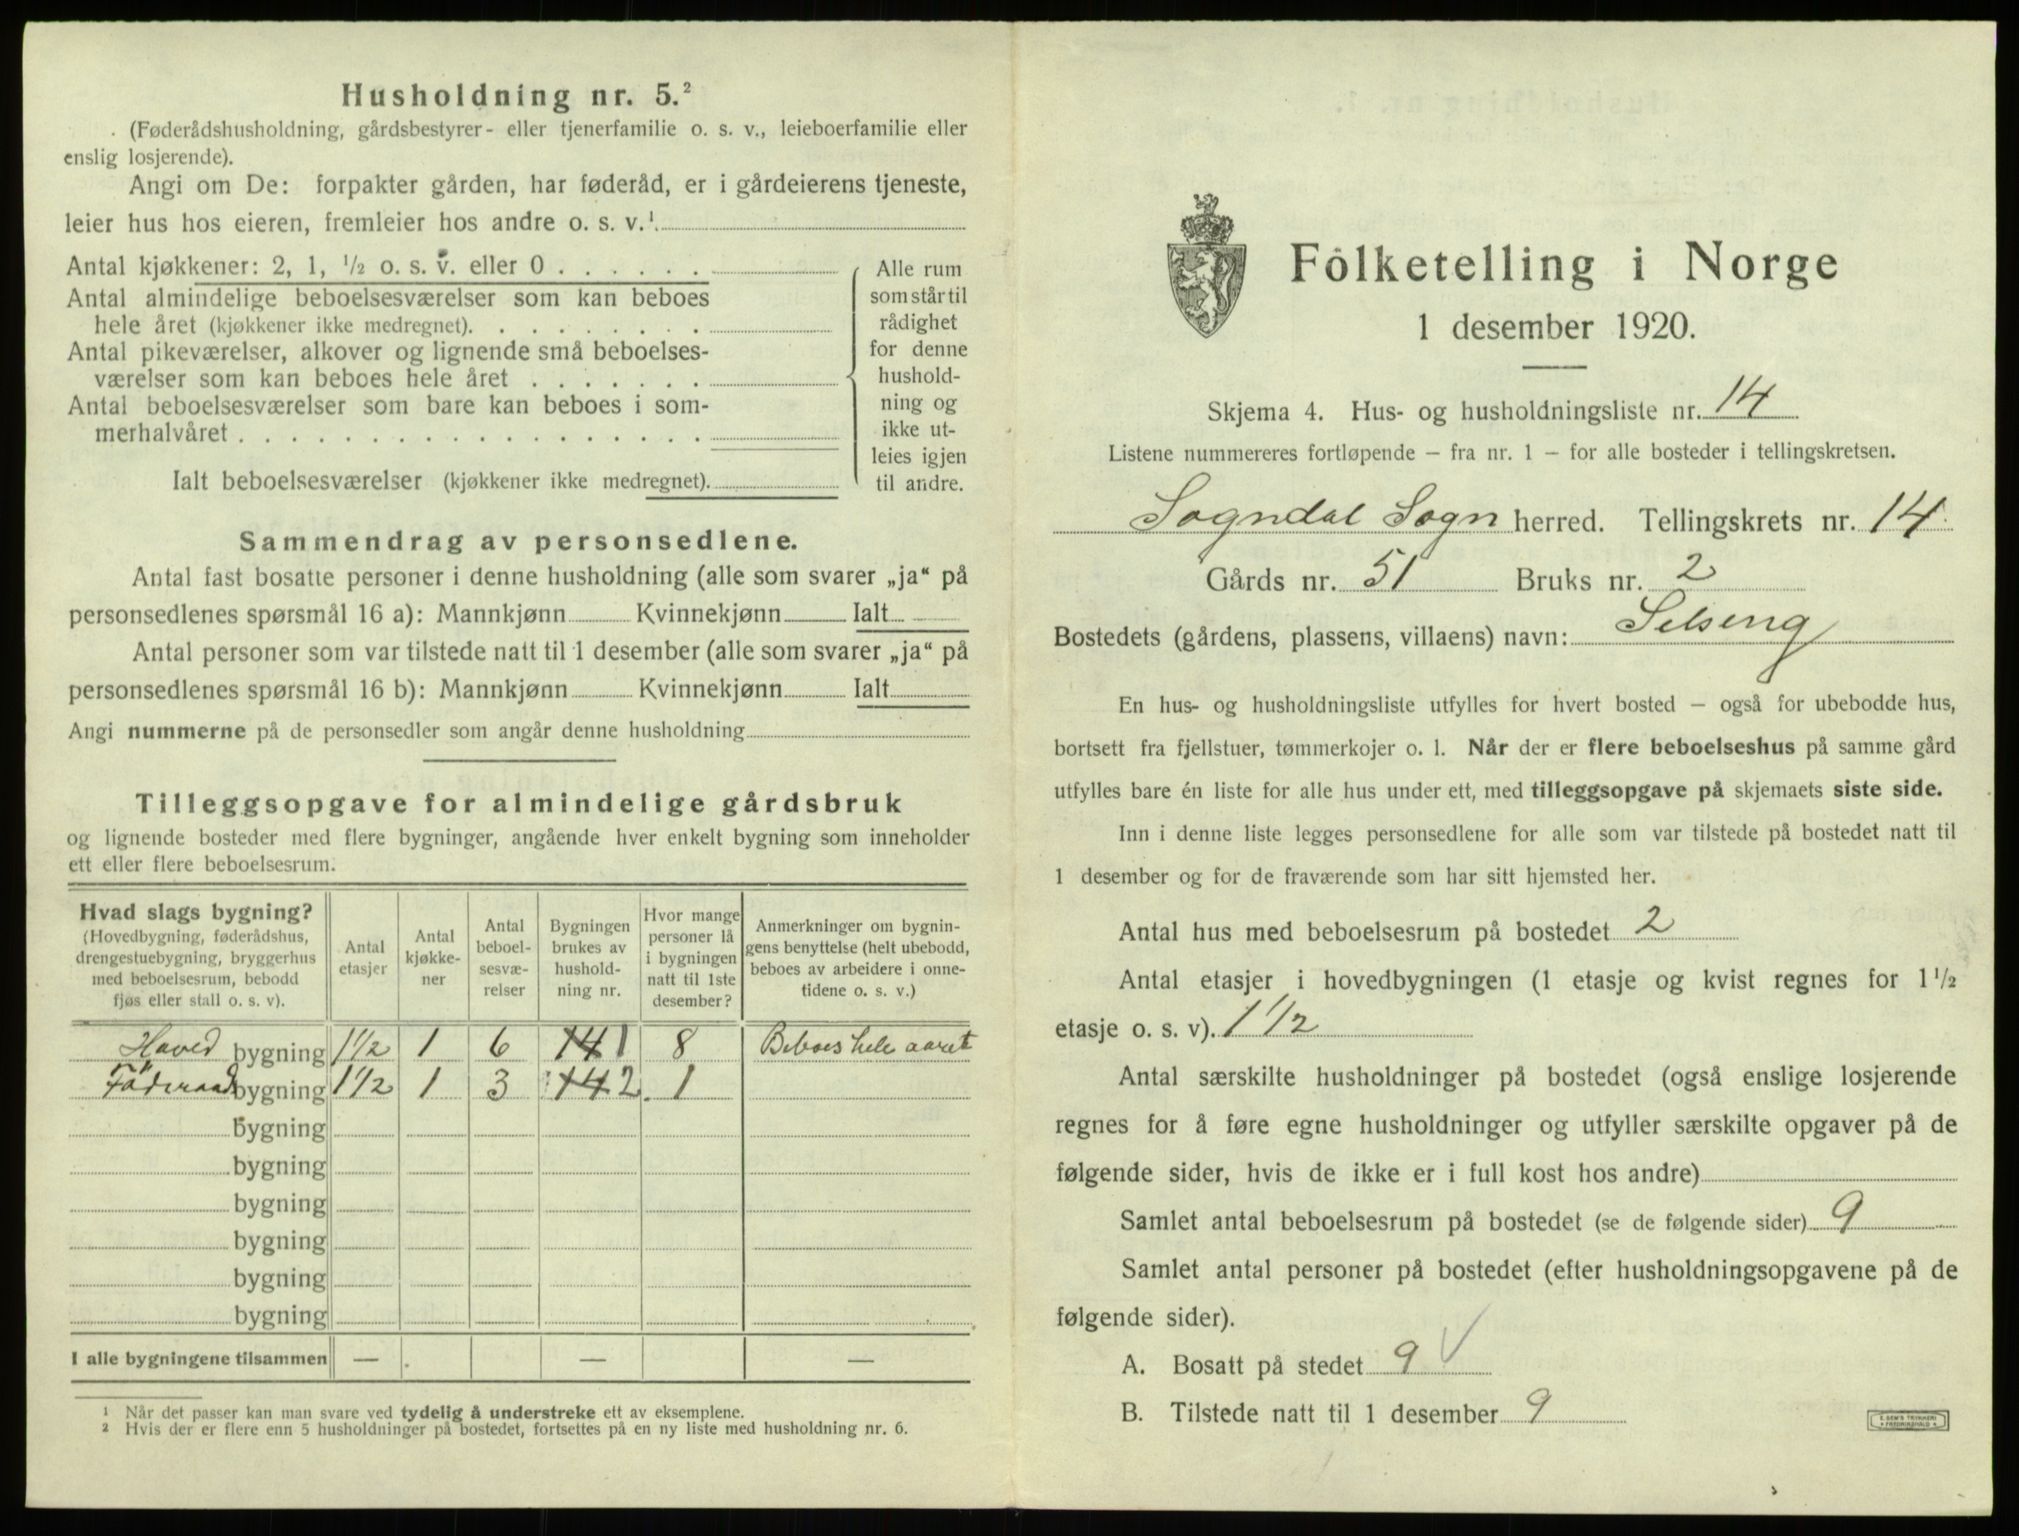 Husholdning nr. 5.²
(Føderådshusholdning, gårdsbestyrer- eller tjenerfamilie o. s. v., leieboerfamilie eller
enslig losjerende).
Angi om De: forpakter gården, har føderåd, er i gårdeierens tjeneste,
leier hus hos eieren, fremleier hos andre o. s. v.¹
Antal kjøkkener: 2, 1, ½ o. s. v. eller 0 . . . . . .
Antal almindelige beboelsesværelser som kan beboes
hele året (kjøkkener ikke medregnet). . . . . . . . .
Antal pikeværelser, alkover og lignende små beboelses-
værelser som kan beboes hele året . . . . . . .
Antal beboelsesværelser som bare kan beboes i som-
merhalvåret . . . . . . . . . . . . . . . . . .
Ialt beboelsesværelser (kjøkkener ikke medregnet).
Alle rum
som står til
rådighet
for denne
hushold-
ning og
ikke ut-
leies igjen
til andre.
Sammendrag av personsedlene.
Antal fast bosatte personer i denne husholdning (alle som svarer „ja“ på
personsedlenes spørsmål 16 a): Mannkjønn Kvinnekjønn Ialt
Antal personer som var tilstede natt til 1 desember (alle som svarer „ja“ på
personsedlenes spørsmål 16 b): Mannkjønn Kvinnekjønn Ialt
Angi nummerne på de personsedler som angår denne husholdning
Tilleggsopgave for almindelige gårdsbruk
og lignende bosteder med flere bygninger, angående hver enkelt bygning som inneholder
ett eller flere beboelsesrum.
Hvad slags bygning?
(Hovedbygning, føderådshus,
drengestuebygning, bryggerhus
med beboelsesrum, bebodd
fjøs eller stall o. s. v).
Antal
etasjer
Antal
kjøkke-
ner
Antal
beboel-
sesvæ-
relser
Bygningen
brukes av
hushold-
ning nr.
Hvor mange
personer lå
i bygningen
natt til 1ste
desember?
Anmerkninger om bygnin-
gens benyttelse (helt ubebodd,
beboes av arbeidere i onne-
tidene o. s. v.)
Hoved bygning 1½ 1 6 141 1 8 Beboes hele aaret
Föderaads bygning 1½ 1 3 142 2 1
bygning
bygning
bygning
bygning
bygning
bygning
I alle bygningene tilsammen — — —
¹ Når det passer kan man svare ved tydelig å understreke ett av eksemplene.
² Hvis der er flere enn 5 husholdninger på bostedet, fortsettes på en ny liste med husholdning nr. 6.
Folketelling i Norge
1 desember 1920.
Skjema 4. Hus- og husholdningsliste nr. 14
Listene nummereres fortløpende – fra nr. 1 – for alle bosteder i tellingskretsen.
Sogndal Sogn herred. Tellingskrets nr. 14
Gårds nr. 51 Bruks nr. 2
Bostedets (gårdens, plassens, villaens) navn: Selseng
En hus- og husholdningsliste utfylles for hvert bosted – også for ubebodde hus,
bortsett fra fjellstuer, tømmerkojer o. l. Når der er flere beboelseshus på samme gård
utfylles bare én liste for alle hus under ett, med tilleggsopgave på skjemaets siste side.
Inn i denne liste legges personsedlene for alle som var tilstede på bostedet natt til
1 desember og for de fraværende som har sitt hjemsted her.
Antal hus med beboelsesrum på bostedet 2
Antal etasjer i hovedbygningen (1 etasje og kvist regnes for 1½
etasje o. s. v). 1½
Antal særskilte husholdninger på bostedet (også enslige losjerende
regnes for å føre egne husholdninger og utfyller særskilte opgaver på de
følgende sider, hvis de ikke er i full kost hos andre)
Samlet antal beboelsesrum på bostedet (se de følgende sider) 9
Samlet antal personer på bostedet (efter husholdningsopgavene på de
følgende sider).
A. Bosatt på stedet 9 √
B. Tilstede natt til 1 desember 9